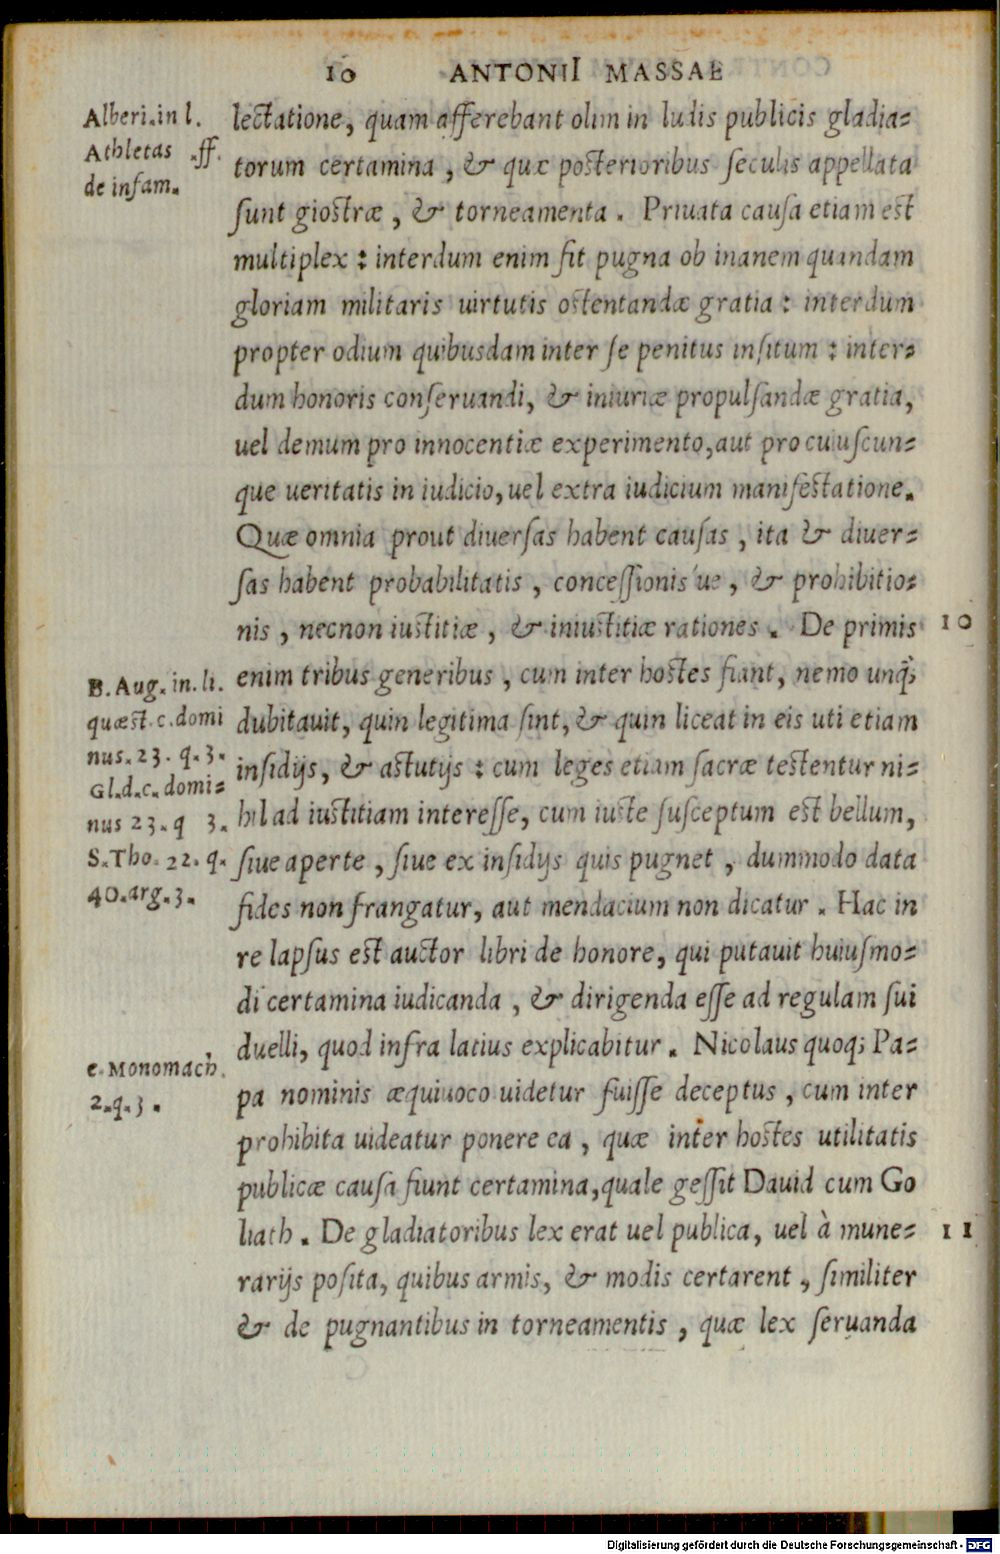 10 ANTONII MASSAE
Alberi.in l.
Athletas .ff.
de infam.
lectatione, quam afferebant olim in ludis publicis gladia=
torum certamina , & quæ posterioribus seculis appellata
sunt giostræ , & torneamenta . Priuata causa etiam est
multiplex : interdum enim fit pugna ob inanem quandam
gloriam militaris uirtutis ostentandæ gratia : interdum
propter odium quibusdam inter se penitus insitum : inter=
dum honoris conseruandi, & iniuriæ propulsandæ gratia,
uel demum pro innocentiæ experimento, aut pro cuiuscun=
que ueritatis in iudicio, uel extra iudicium manifestatione.
Quæ omnia prout diuersas habent causas , ita & diuer=
sas habent probabilitatis , concessionis ue , & prohibitio=
nis , necnon iustitiæ , & iniustitiæ rationes . De primis 10
enim tribus generibus , cum inter hostes fiant, nemo unq̃;
dubitauit, quin legitima sint, & quin liceat in eis uti etiam
insidijs, & astutijs : cum leges etiam sacræ testentur ni=
hil ad iustitiam interesse, cum iuste susceptum est bellum,
siue aperte , siue ex insidijs quis pugnet , dummodo data
fides non frangatur, aut mendacium non dicatur . Hac in
re lapsus est auctor libri de honore, qui putauit huiusmo=
di certamina iudicanda , & dirigenda esse ad regulam sui
duelli, quod infra latius explicabitur . Nicolaus quoq; Pa=
pa nominis æquiuoco uidetur fuisse deceptus , cum inter
prohibita uideatur ponere ea , quæ inter hostes utilitatis
publicæ causa fiunt certamina, quale gessit Dauid cum Go
liath . De gladiatoribus lex erat uel publica, uel à mune= 11
rarijs posita, quibus armis, & modis certarent , similiter
& de pugnantibus in torneamentis , quæ lex seruanda
B. Aug. in. li.
quæst. c. domi
nus. 23. q. 3.
Gl.d.c. domi=
nus 23. q 3.
S. Tho. 22. q.
40. arg. 3.
c. Monomach.
2. q. 3 .
Digitalisierung gefördert durch die Deutsche Forschungsgemeinschaft - DFG